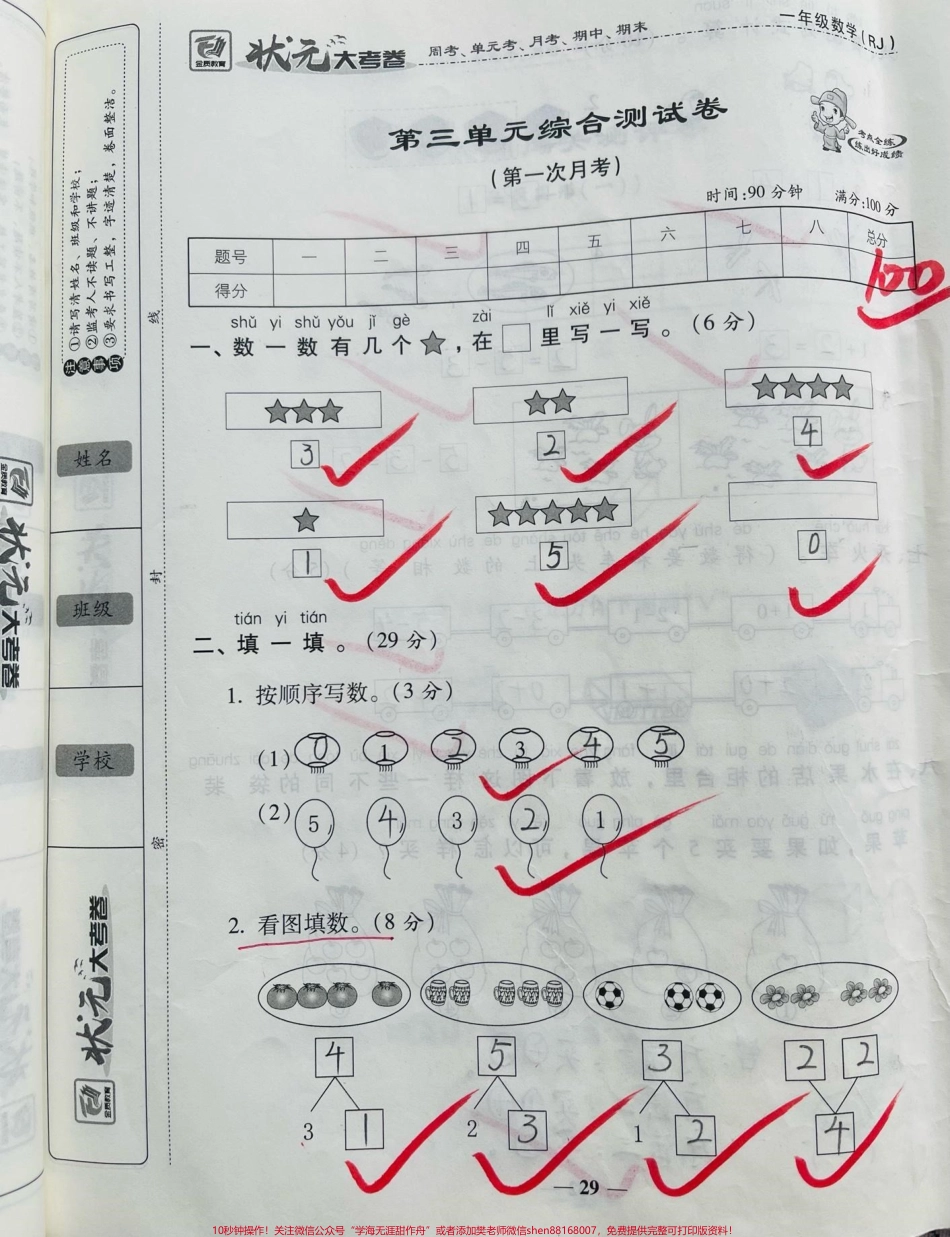 金质教育
状元大考卷
周考、单元考、月考、期中、期末
一年级数学(RJ)
第三单元综合测试卷
(第一次月考)
考点全练
练出好成绩
时间:90分钟 满分:100分
题号 一 二 三 四 五 六 七 八 总分
得分 100
shǔ yi shǔ yǒu jǐ gè zài lǐ xiě yi xiě
一、数一数有几个★,在□里写一写。(6分)
3 2 4
1 5 0
tián yi tián
二、填一填。(29分)
1. 按顺序写数。(3分)
(1) 0 1 2 3 4 5
(2) 5, 4, 3, 2, 1,
2. 看图填数。(8分)
4 5 3 2 2
3 1 2 3 1 2 4
— 29 —
注意事项
①请写清姓名、班级和学校;
②监考人不读题、不讲题;
③要求书写工整,字迹清楚,卷面整洁。
姓名
班级
学校
线
封
密
状元大考卷
金质教育
金质教育
状元大考卷
10秒钟操作!关注微信公众号“学海无涯甜作舟”或者添加樊老师微信shen88168007,免费提供完整可打印版资料!